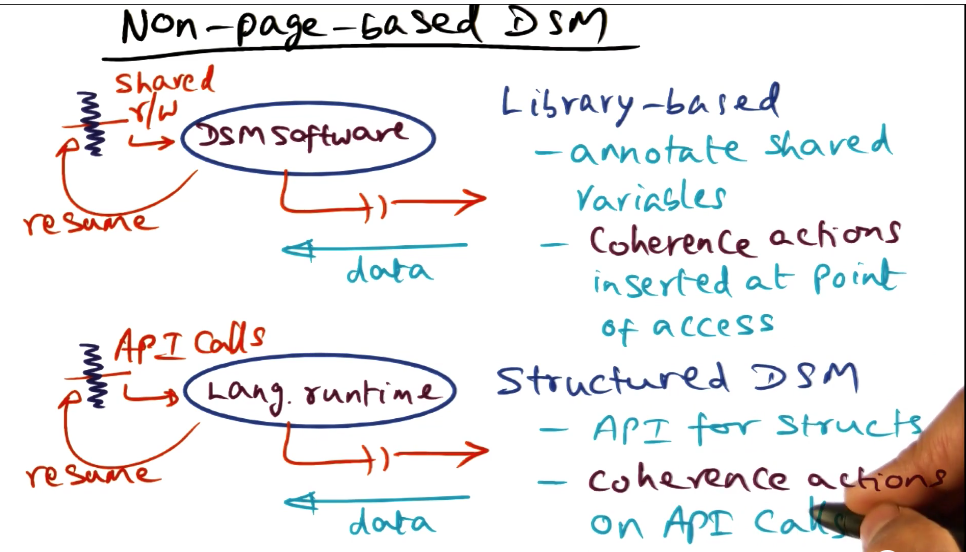 Non-page-based DSM
shared
r/w
DSM software
resume
data
Library-based
- annotate shared
variables
- Coherence actions
inserted at point
of access
API Calls
Lang. runtime
resume
data
Structured DSM
- API for structs
- coherence actions
on API Calls